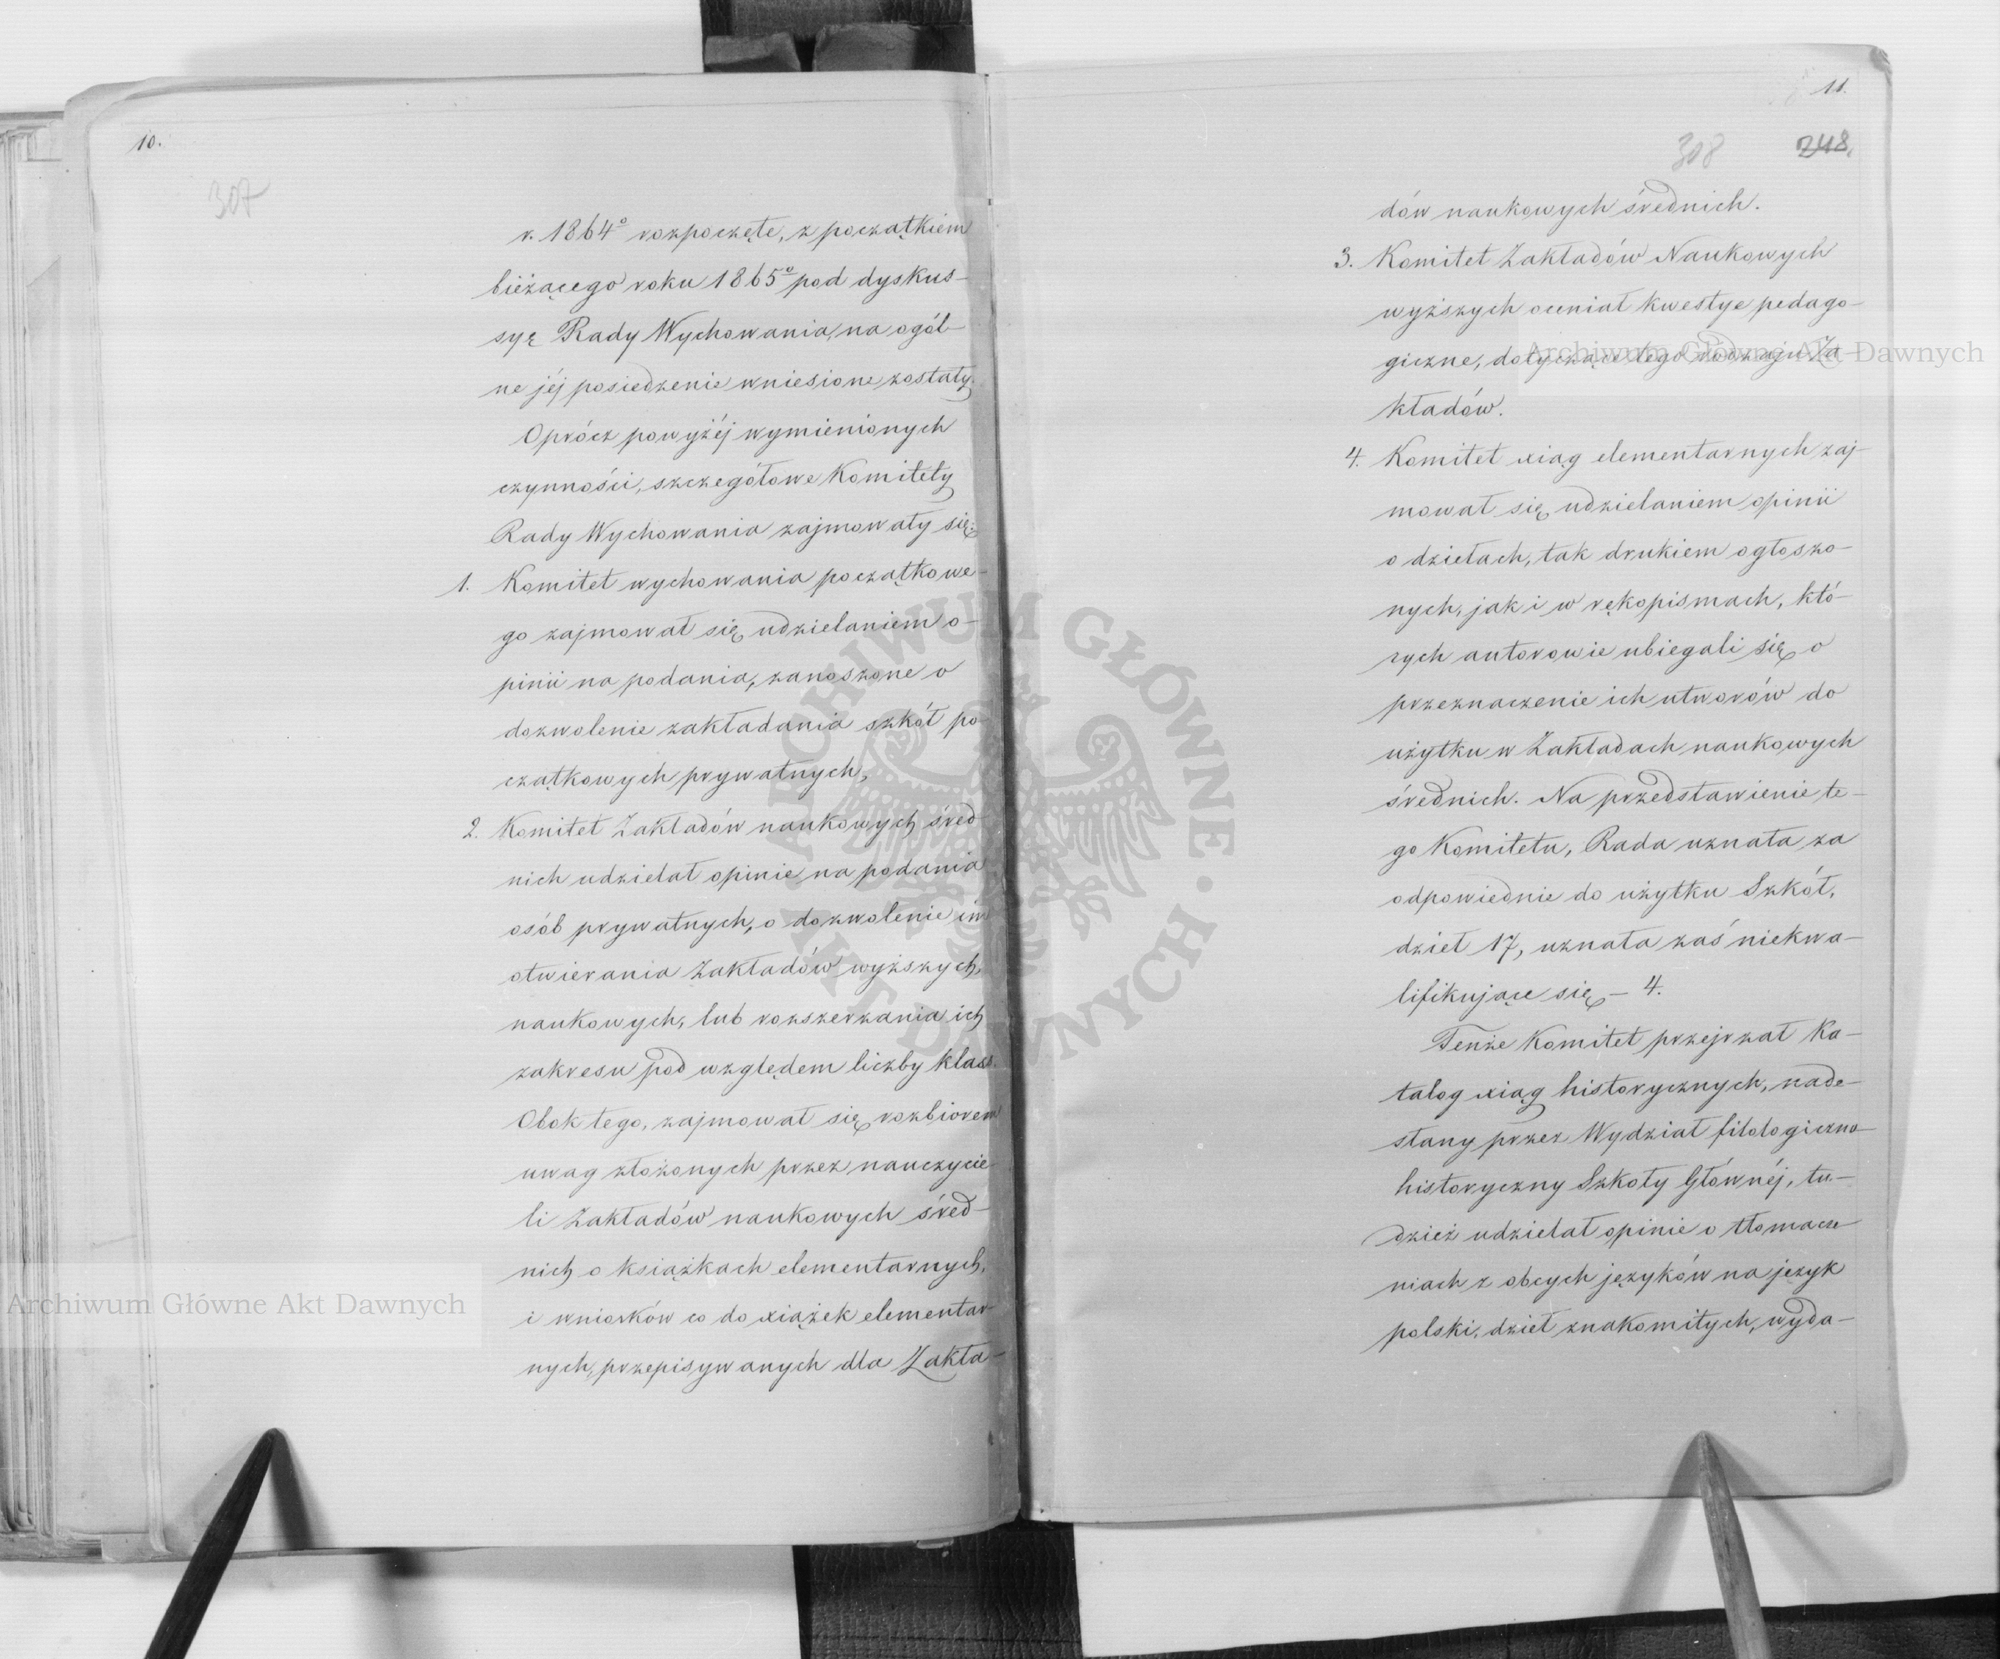 10.
307
r. 1864º rozpoczęte, z początkiem
bieżącego roku 1865º pod dyskus-
syę Rady Wychowania, na ogól-
ne jéj posiedzenie wniesione zostały.
Oprócz powyżéj wymienionych
czynności, szczegółowe Komitety
Rady Wychowania zajmowały się:
1. Komitet wychowania początkowe-
go zajmował się udzielaniem o-
pinii na podania, zanoszone o
dozwolenie zakładania szkół po-
czątkowych prywatnych,
2. Komitet Zakładów naukowych śred-
nich udzielał opinie na podania
osób prywatnych, o dozwolenie im
otwierania Zakładów wyższych
naukowych, lub rozszerzania ich
zakresu pod względem liczby klass.
Obok tego, zajmował się rozbiorem
uwag złożonych przez nauczycie-
li Zakładów naukowych śred-
nich o książkach elementarnych,
i wniosków co do xiążek elementar-
nych, przepisywanych dla Zakła-
11.
308 248.
dów naukowych średnich.
3. Komitet Zakładów Naukowych
wyższych oceniał kwestye pedago-
giczne, dotyczące tego rodzaju Za-
kładów.
4. Komitet xiąg elementarnych zaj-
mował się udzielaniem opinii
o dziełach, tak drukiem ogłoszo-
nych, jak i w rękopismach, któ-
rych autorowie ubiegali się o
przeznaczenie ich utworów do
użytku w Zakładach naukowych
średnich. Na przedstawienie te-
go Komitetu, Rada uznała za
odpowiednie do użytku Szkół,
dzieł 17, uznała zaś niekwa-
lifikujące się – 4.
Tenże Komitet przejrzał Ka-
talog xiąg historycznych, nade-
słany przez Wydział filologiczno-
historyczny Szkoły Głównéj, tu-
dzież udzielał opinie o tłomacze-
niach z obcych języków na język
polski, dzieł znakomitych, wyda-
Archiwum Główne Akt Dawnych
Archiwum Główne Akt Dawnych
ARCHIWUM GŁÓWNE AKT DAWNYCH